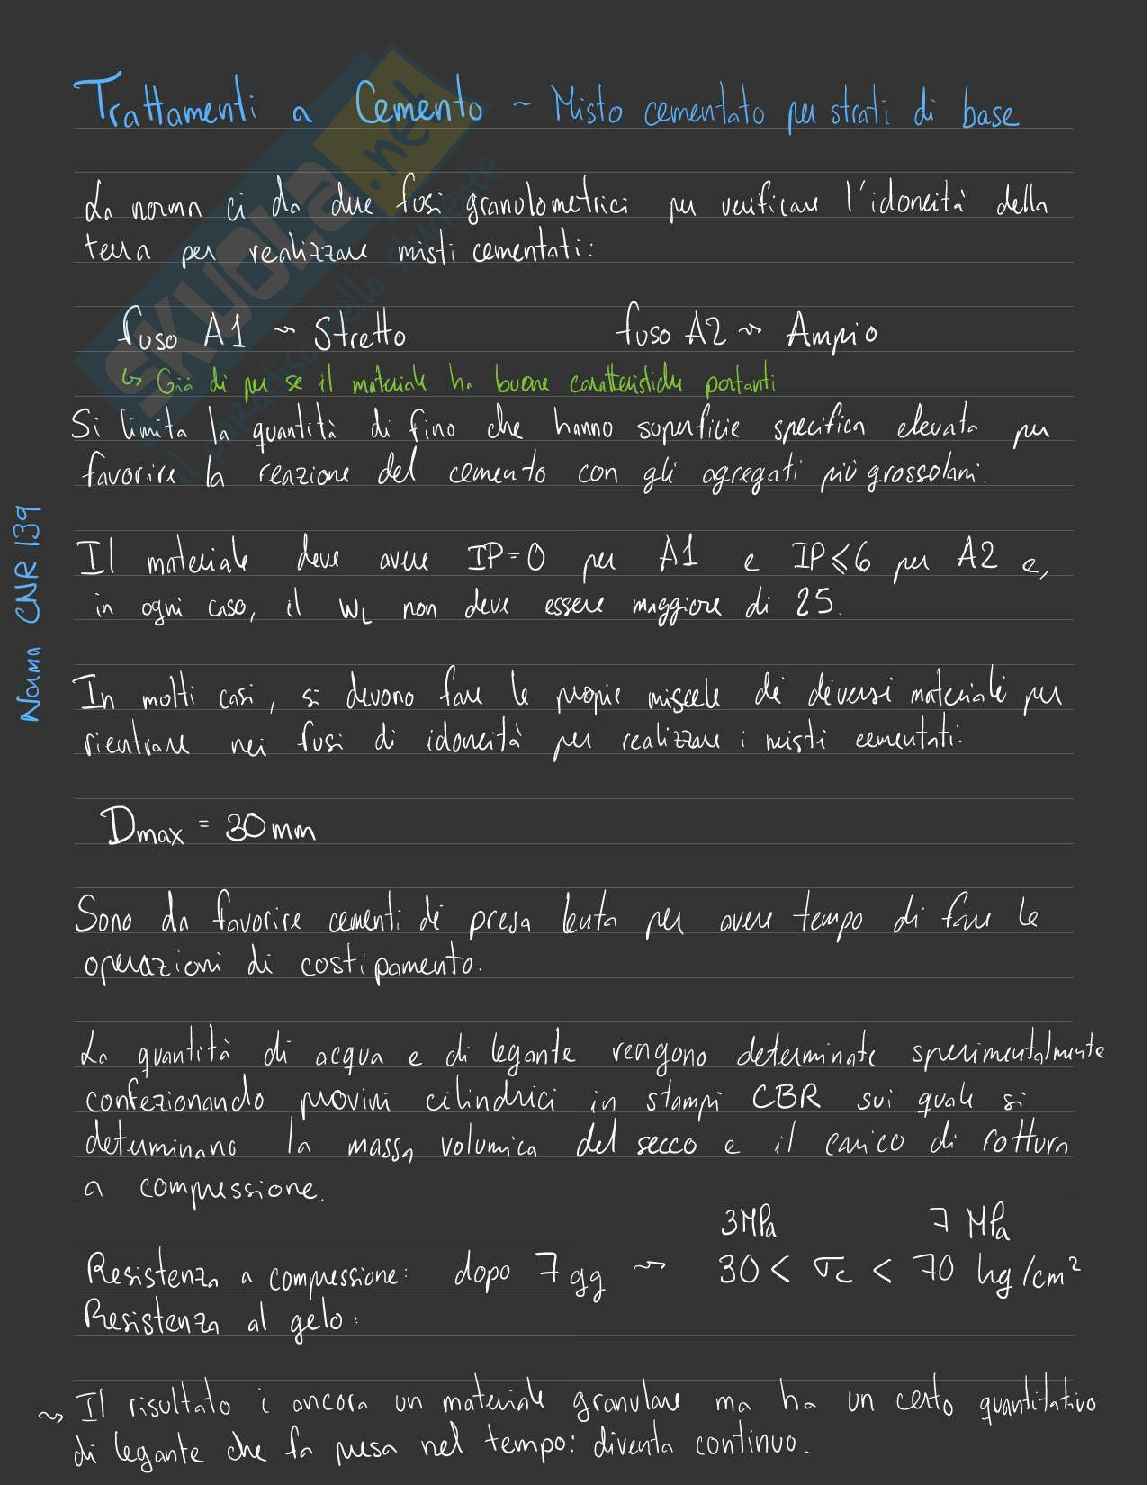 Trattamenti a Cemento ~ Misto cementato per strati di base
La norma ci da due fusi granulometrici per verificare l'idoneità della
terra per realizzare misti cementati:
fuso A1 ~ Stretto fuso A2 ~ Ampio
↳ Già di per se il materiale ha buone caratteristiche portanti
Si limita la quantità di fino che hanno superficie specifica elevata per
favorire la reazione del cemento con gli agregati più grossolani.
Norma CNR 139
Il materiale deve avere IP=0 per A1 e IP≤6 per A2 e,
in ogni caso, il WL non deve essere maggiore di 25.
In molti casi, si devono fare le proprie miscele di diversi materiali per
rientrare nei fusi di idoneità per realizzare i misti cementati.
Dmax = 30mm
Sono da favorire cementi di presa lenta per avere tempo di fare le
operazioni di costipamento.
La quantità di acqua e di legante vengono determinate sperimentalmente
confezionando provini cilindrici in stampi CBR sui quale si
determinano la massa volumica del secco e il carico di rottura
a compressione.
3MPa 7 MPa
Resistenza a compressione: dopo 7 gg ~ 30 < σc < 70 kg/cm²
Resistenza al gelo:
~ Il risultato è ancora un materiale granulare ma ha un certo quantitativo
di legante che fa presa nel tempo: diventa continuo.
SKUOLA.net